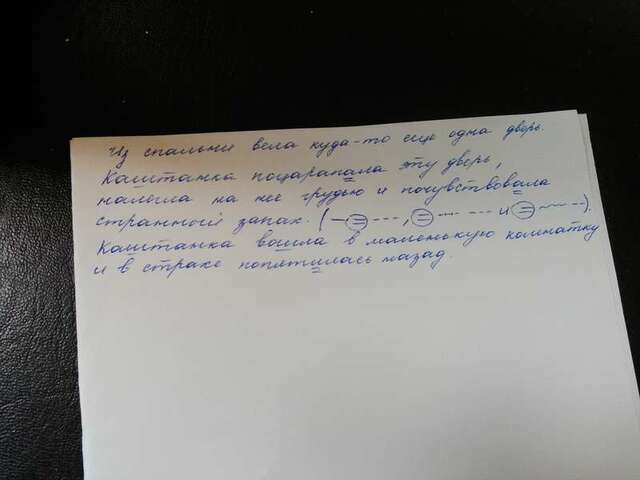 Из спальни вела куда-то еще одна дверь.
Каштанка поцарапала эту дверь,
налегла на нее грудью и почувствовала
странный запах. (— = ---, = --- и = ---).
Каштанка вошла в маленькую комнатку
и в страхе попятилась назад.